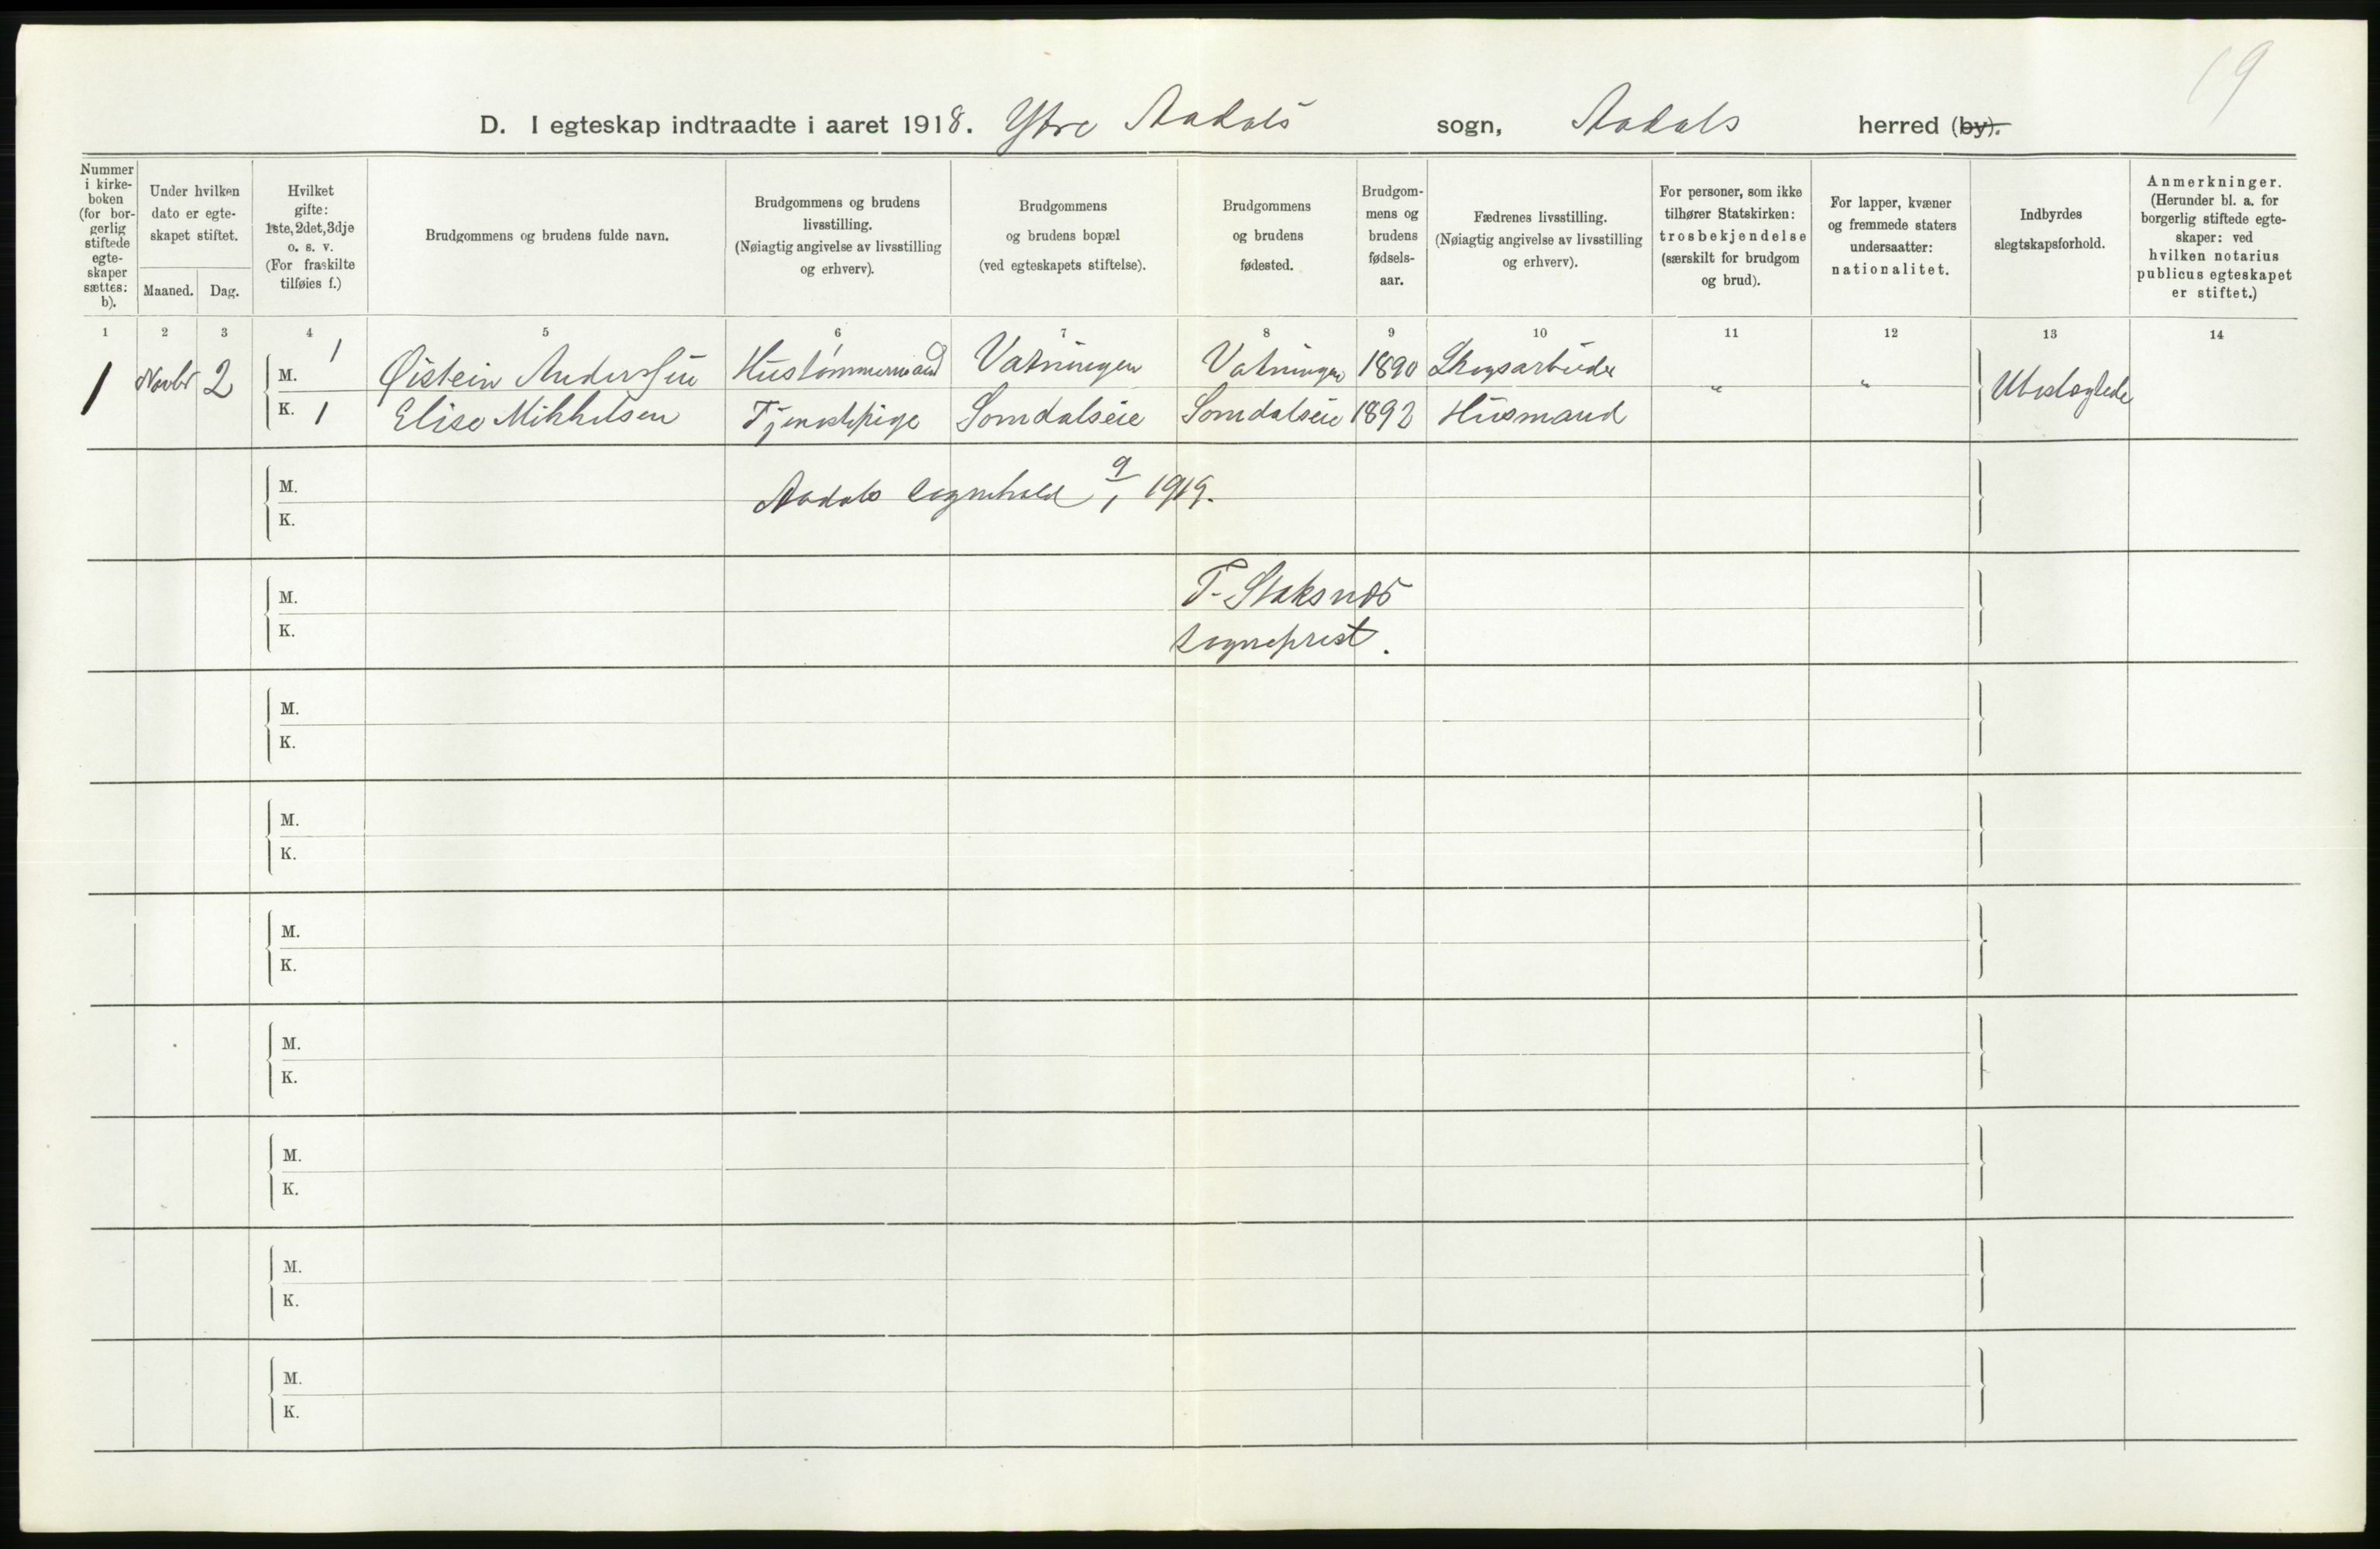 19
D. I egteskap indtraadte i aaret 1918. Ytre Aadals sogn, Aadals herred (by).
Nummer i kirke-boken (for bor-gerlig stiftede egte-skaper sættes: b).
Under hvilken dato er egte-skapet stiftet.
Maaned. Dag.
Hvilket gifte: 1ste, 2det, 3dje o. s. v. (For fraskilte tilføies f.)
Brudgommens og brudens fulde navn.
Brudgommens og brudens livsstilling. (Nøiagtig angivelse av livsstilling og erhverv).
Brudgommens og brudens bopæl (ved egteskapets stiftelse).
Brudgommens og brudens fødested.
Brudgom-mens og brudens fødsels-aar.
Fædrenes livsstilling. (Nøiagtig angivelse av livsstilling og erhverv).
For personer, som ikke tilhører Statskirken: trosbekjendelse (særskilt for brudgom og brud).
For lapper, kvæner og fremmede staters undersaatter: nationalitet.
Indbyrdes slegtskapsforhold.
Anmerkninger. (Herunder bl. a. for borgerlig stiftede egte-skaper: ved hvilken notarius publicus egteskapet er stiftet.)
1 2 3 4 5 6 7 8 9 10 11 12 13 14
1 Novbr 2 M. 1 Øistein Anderssen Hustømmermand Vatningen Vatningen 1890 Skogsarbeider " " Ubeslegtede
K. 1 Elise Mikkelsen Tjenestepige Somdalseie Somdalseie 1892 Husmand
M.
Aadals sognekald 9/1 1919.
K.
M. T. Staksnes
K. sogneprest.
M.
K.
M.
K.
M.
K.
M.
K.
M.
K.
M.
K.
M.
K.